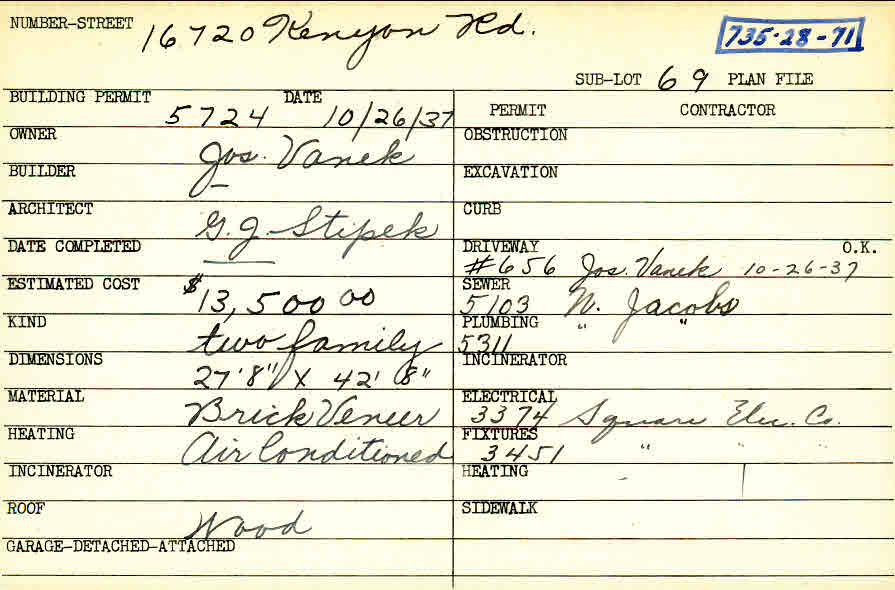 NUMBER-STREET 16720 Kenyon Rd.
735-28-71
SUB-LOT 69 PLAN FILE
BUILDING PERMIT 5724 DATE 10/26/37
OWNER Jos. Vanek
BUILDER "
ARCHITECT G. J. Stipek
DATE COMPLETED
ESTIMATED COST $13,500 00
KIND two family
DIMENSIONS 27'8" X 42'8"
MATERIAL Brick Veneer
HEATING Air Conditioned
INCINERATOR
ROOF Wood
GARAGE-DETACHED-ATTACHED
PERMIT CONTRACTOR
OBSTRUCTION
EXCAVATION
CURB
DRIVEWAY O.K.
#656 Jos. Vanek 10-26-37
SEWER
5103 N. Jacobs
PLUMBING " "
5311
INCINERATOR
ELECTRICAL
3374 Square Elec. Co.
FIXTURES
3451 " " "
HEATING
SIDEWALK